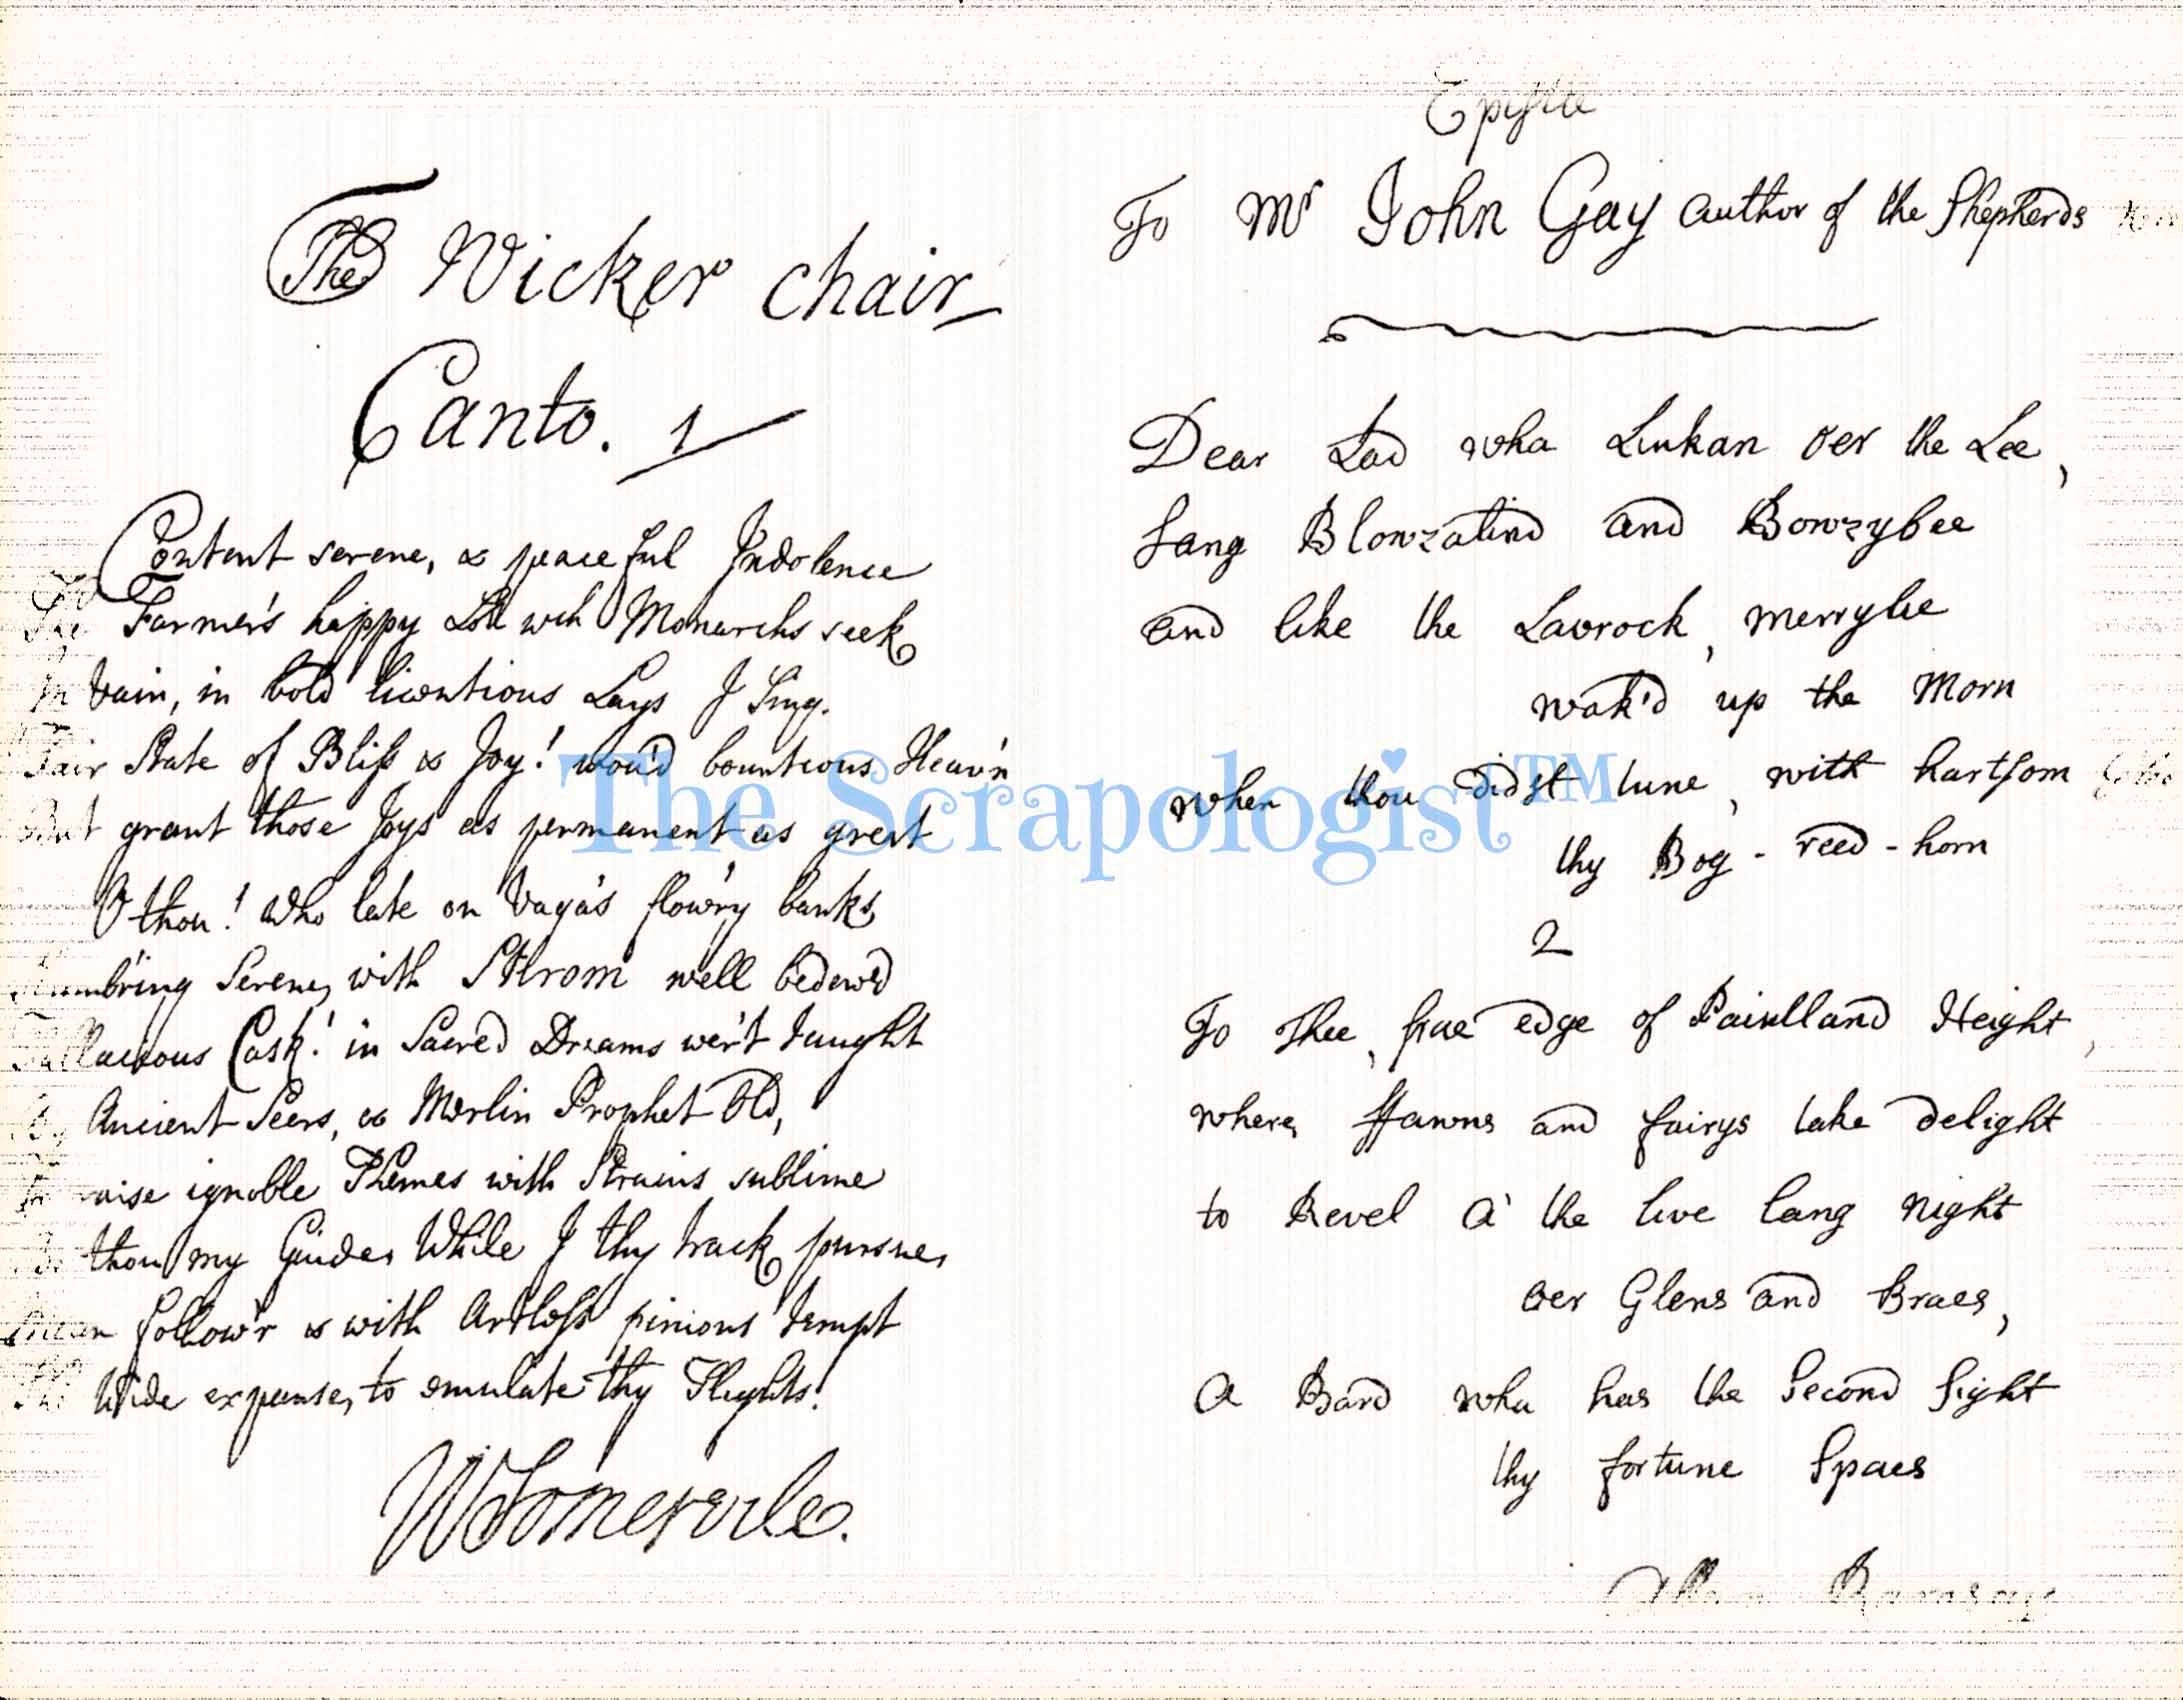 The Wicker chair
Canto. 1
Content serene, & peaceful Indolence
The Farmer's happy Lott wch Monarchs seek
In Vain, in bold licentious Lays I Sing.
Fair State of Bliss & Joy! wou'd bounteous Heav'n
But grant those Joys as permanent as great
O thou! Who late on Vaga's flow'ry banks
Slumb'ring Serene, with Stirom well bedew'd
Fallacious Cask! in Sacred Dreams wer't taught
By Ancient Seers, & Merlin Prophet Old,
To raise ignoble Themes with Strains sublime
Be thou my Guide, While I thy track pursue,
Mean follow'r & with Artless pinions tempt
The Wide expanse, to emulate thy Flights!
WSomervile.
Epistle
To Mr John Gay author of the Shepherds
Dear Lad wha Linkan o'er the Lee,
Sang Blowzalind and Bowzybee
and like the Lavrock, merrylie
wak'd up the Morn
when thou didst tune, with hartsom
thy Bog-reed-horn
2
To Thee, frae edge of Paintland Height,
where, ffawns and fairys take delight
to Revel a' the live lang night
o'er Glens and Braes,
a Bard wha has the Second Sight
thy fortune Spaes
Allan Ramsay
The Scrapologist™